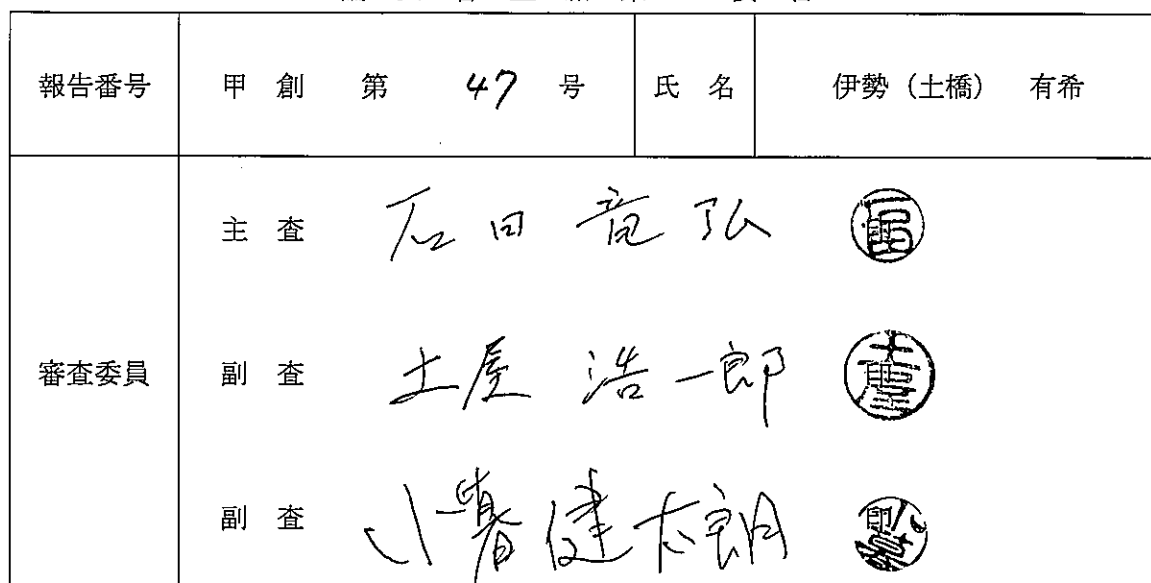 報告番号 甲 創 第 47 号 氏 名 伊勢(土橋) 有希
主 査 石田竜弘
審査委員 副 査 土屋 浩一郎
副 査 小暮健太朗